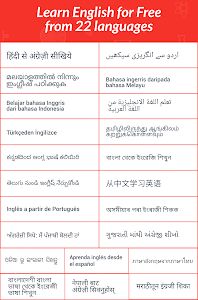 Learn English for Free
from 22 languages
हिंदी से अंग्रेज़ी सीखिये
اردو سے انگریزی سیکھیں
മലയാളത്തിൽ നിന്നും
ഇംഗ്ലീഷ് പഠിക്കുക
Bahasa inggeris daripada
bahasa Melayu
Belajar bahasa Inggris
dari bahasa Indonesia
تعلم اللغة الانجليزية من
اللغة العربية
Türkçeden ingilizce
தமிழிலிருந்து ஆங்கிலம்
கற்றுக்கொள்ளவும்
বাংলা থেকে ইংরেজি শিখুন
తెలుగు నుండి ఇంగ్లీష్ నేర్చుకోండి
从中文学习英语
Inglês a partir de Português
ગુજરાતી થી અંગ્રેજી શીખો
Aprenda inglés desde
el español
नेपाली बाट
अंग्रेजी सिक्नुहोस्
मराठीतून इंग्रजी शिका